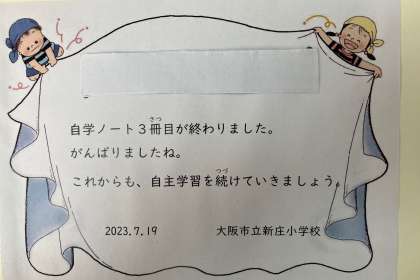 自学ノート3冊目が終わりました。
がんばりましたね。
これからも、自主学習を続けていきましょう。
2023.7.19 大阪市立新庄小学校